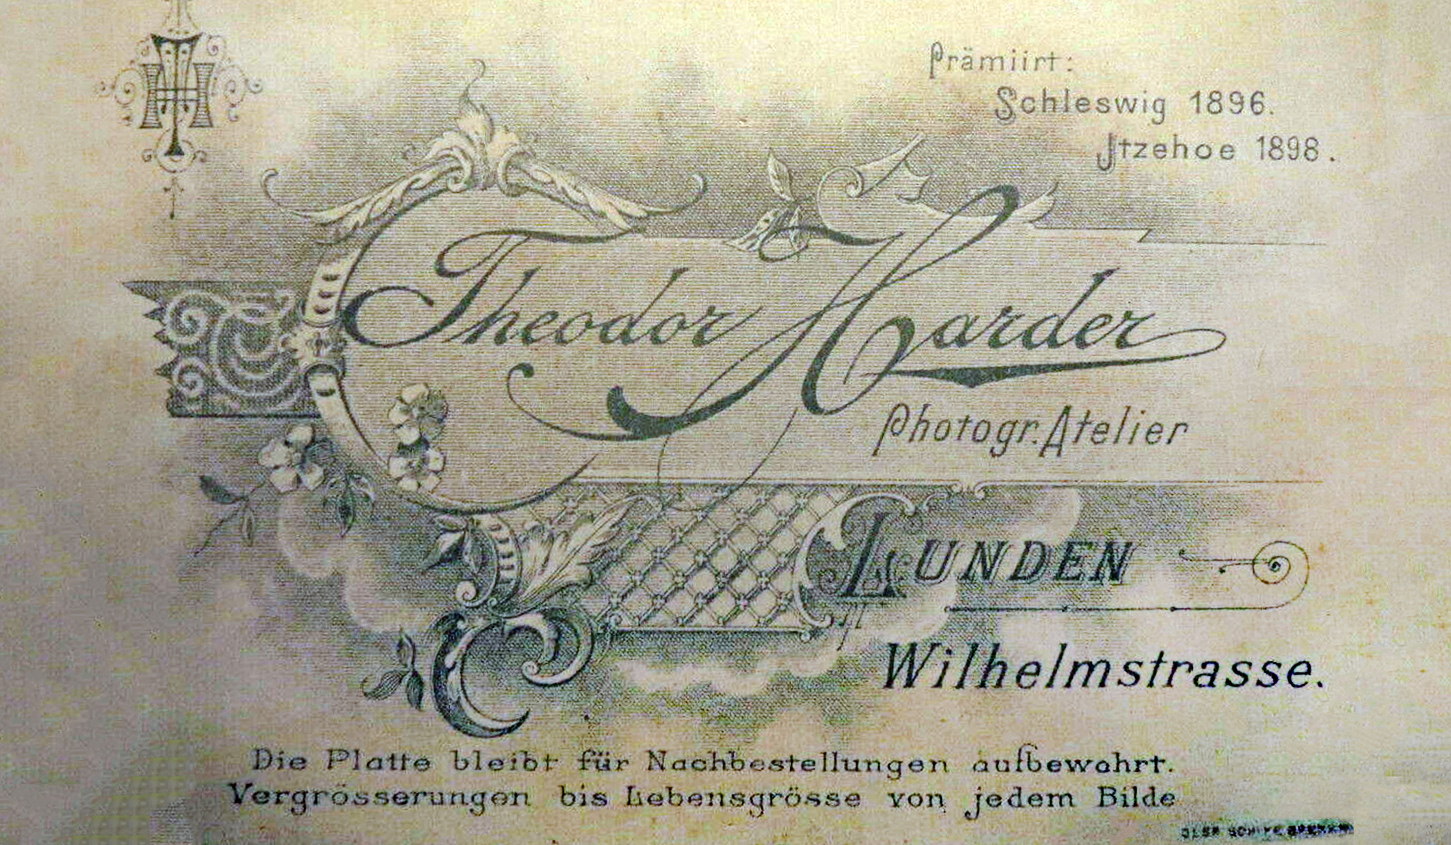 Prämiirt:
Schleswig 1896.
Jtzehoe 1898.
Theodor Harder
Photogr. Atelier
LUNDEN
Wilhelmstrasse.
Die Platte bleibt für Nachbestellungen aufbewahrt.
Vergrösserungen bis Lebensgrösse von jedem Bilde